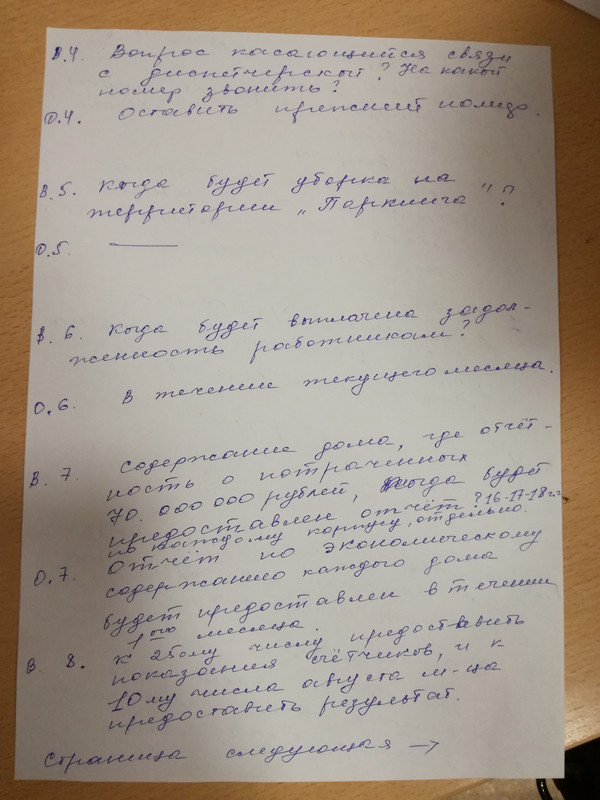 В.4. Вопрос касающийся связи
с диспетчерской? На какой
номер звонить?
О.4. Оставить прежний номер.
В.5. Когда будет уборка на
территории „Паркинга"?
О.5. —
В.6. Когда будет выплачена задол-
женность работникам?
О.6. В течение текущего месяца.
В.7. Содержание дома, где отчёт-
ность о потраченных
70.000 000 рублей, когда будет
предоставлен отчёт? 16-17-18гг
по каждому корпусу, отдельно.
О.7. Отчёт по экономическому
содержанию каждого дома
будет предоставлен в течении
1ого месяца.
В.8. К 25ому числу предоставить
показания счётчиков, и к
10му числа августа м-ца
предоставить результат.
Страница следующая →